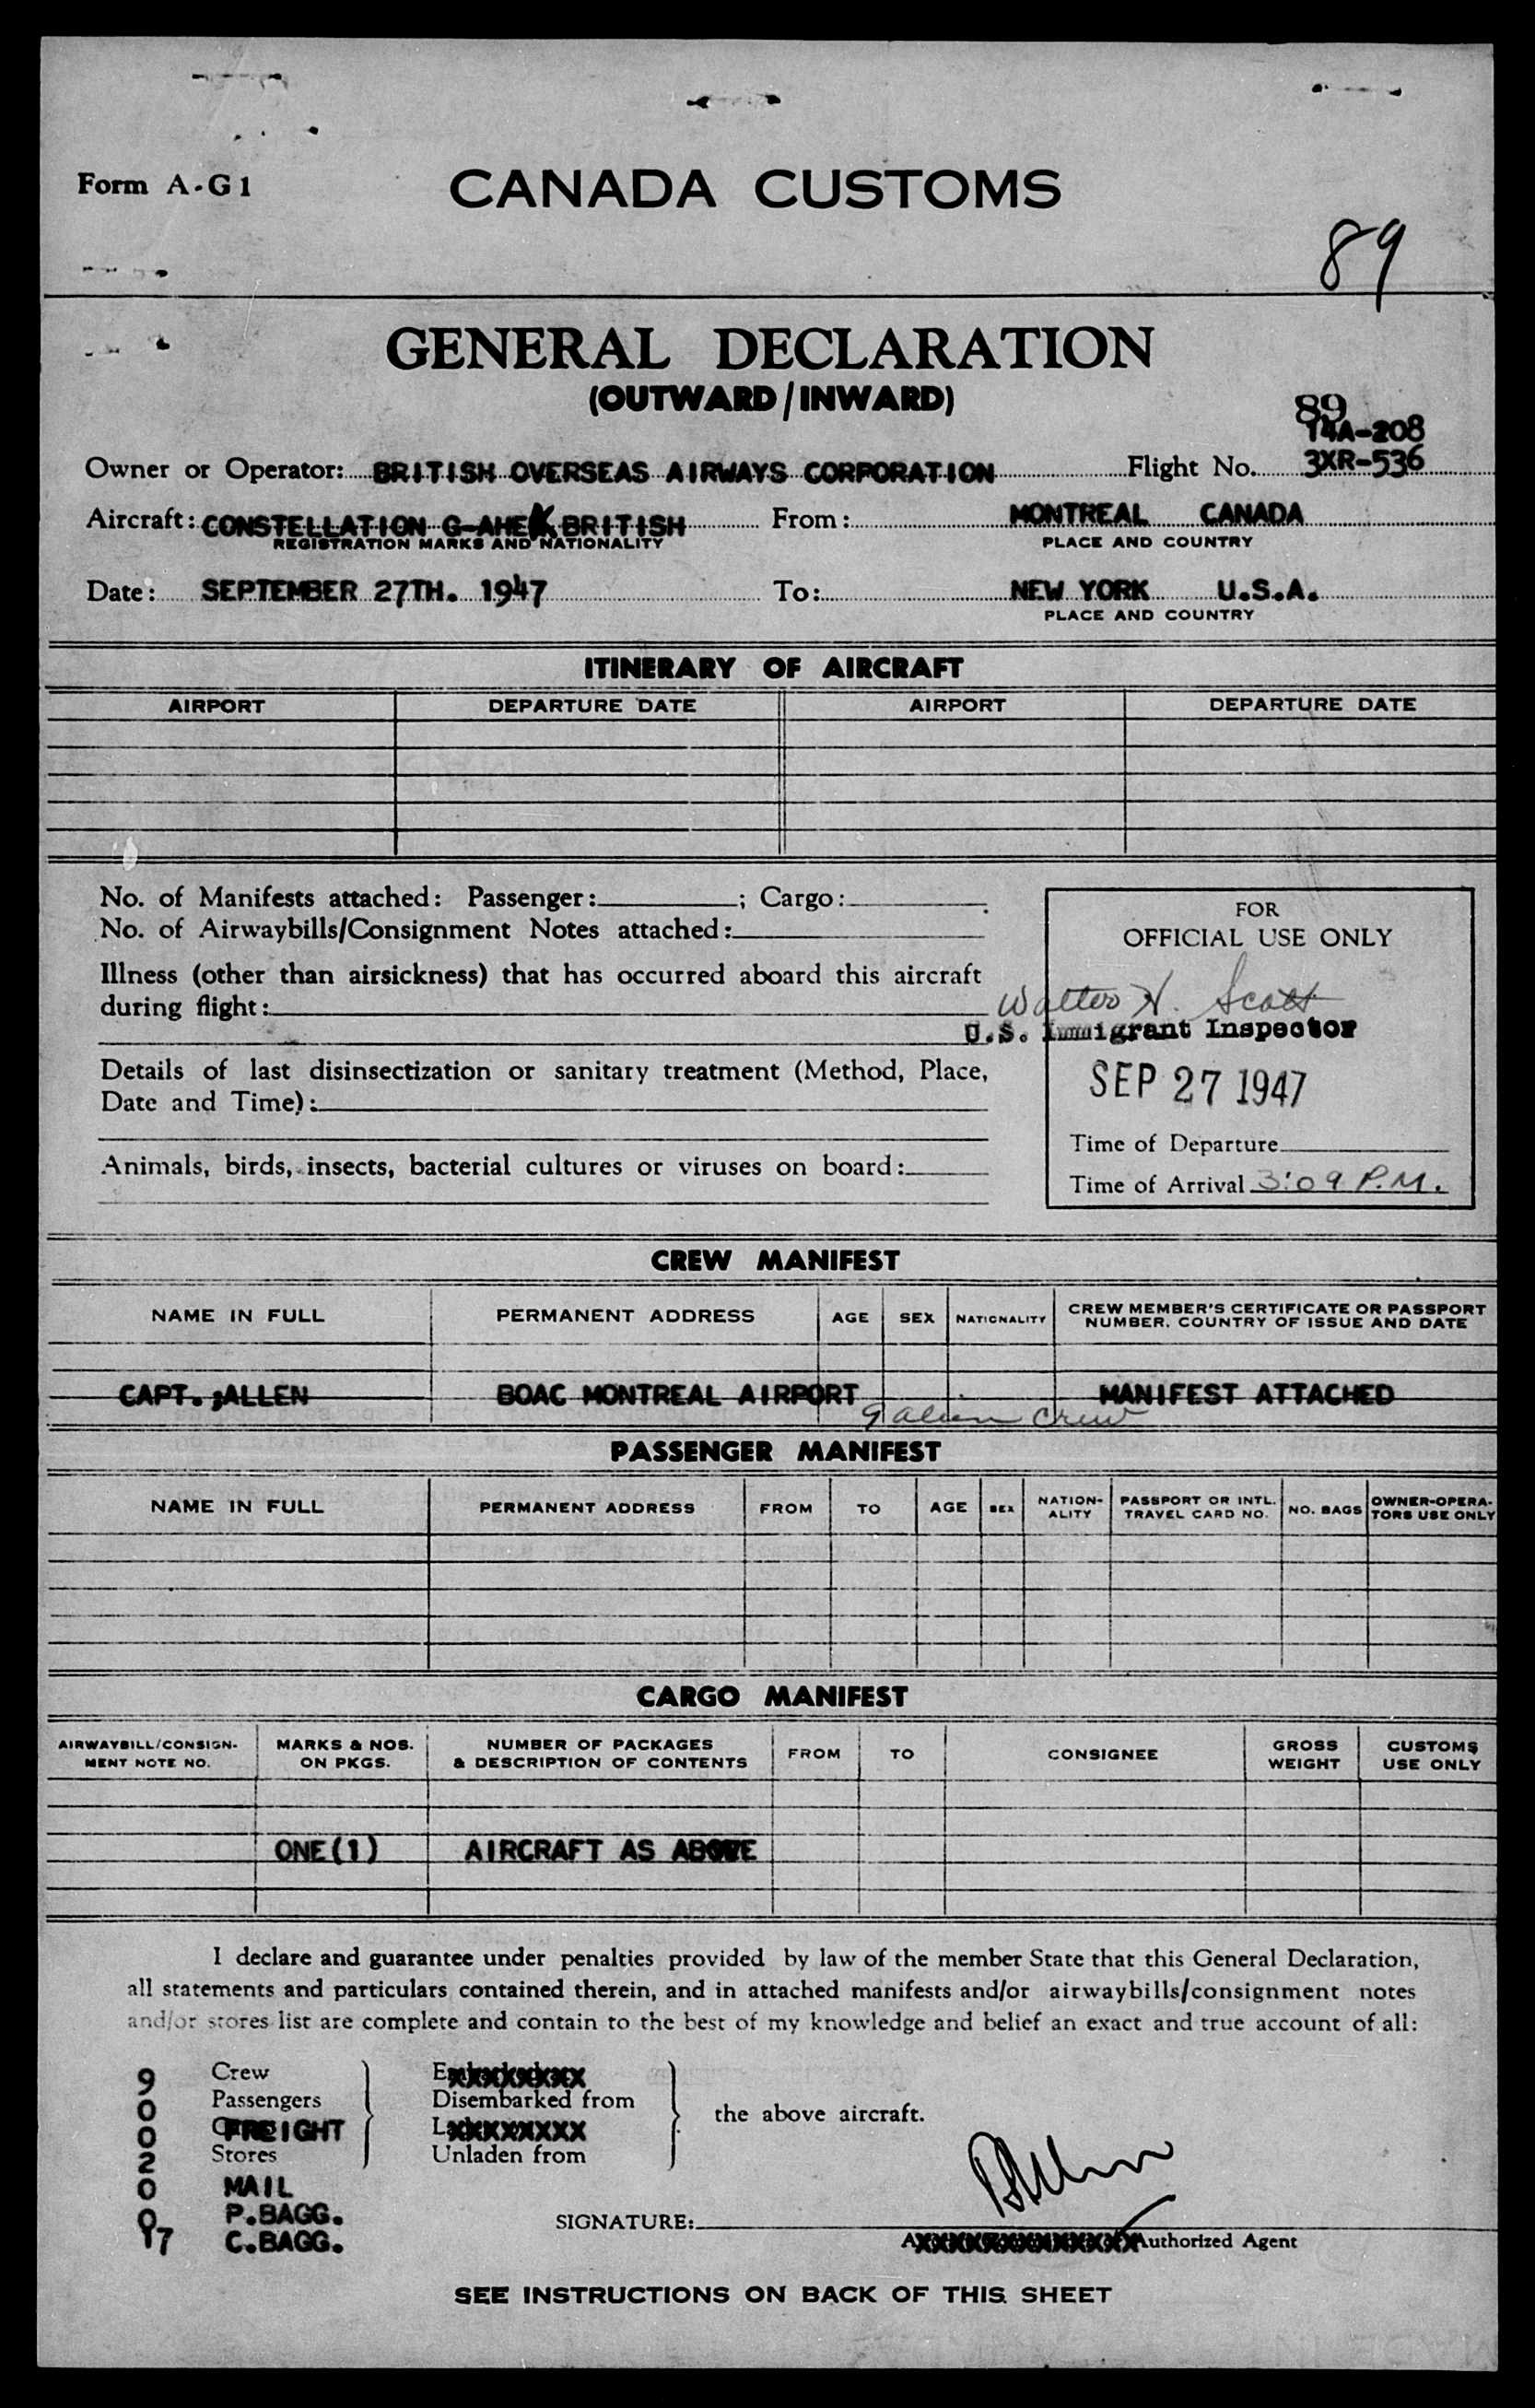 Form A-G1
CANADA CUSTOMS
89
GENERAL DECLARATION
(OUTWARD/INWARD)
89
14A-208
Owner or Operator: BRITISH OVERSEAS AIRWAYS CORPORATION Flight No. 3XR-536
Aircraft: CONSTELLATION G-AHEK BRITISH From: MONTREAL CANADA
REGISTRATION MARKS AND NATIONALITY PLACE AND COUNTRY
Date: SEPTEMBER 27TH. 1947 To: NEW YORK U.S.A.
PLACE AND COUNTRY
ITINERARY OF AIRCRAFT
AIRPORT DEPARTURE DATE AIRPORT DEPARTURE DATE
No. of Manifests attached: Passenger: ; Cargo: .
No. of Airwaybills/Consignment Notes attached:
Illness (other than airsickness) that has occurred aboard this aircraft
during flight:
Details of last disinsectization or sanitary treatment (Method, Place,
Date and Time):
Animals, birds, insects, bacterial cultures or viruses on board:
FOR
OFFICIAL USE ONLY
Walter H. Scott
U.S. Immigrant Inspector
SEP 27 1947
Time of Departure
Time of Arrival 3:09 P.M.
CREW MANIFEST
NAME IN FULL PERMANENT ADDRESS AGE SEX NATIONALITY CREW MEMBER'S CERTIFICATE OR PASSPORT
NUMBER, COUNTRY OF ISSUE AND DATE
CAPT. ;ALLEN BOAC MONTREAL AIRPORT MANIFEST ATTACHED
9 alien crew
PASSENGER MANIFEST
NAME IN FULL PERMANENT ADDRESS FROM TO AGE SEX NATION-
ALITY PASSPORT OR INTL.
TRAVEL CARD NO. NO. BAGS OWNER-OPERA-
TORS USE ONLY
CARGO MANIFEST
AIRWAYBILL/CONSIGN-
MENT NOTE NO. MARKS & NOS.
ON PKGS. NUMBER OF PACKAGES
& DESCRIPTION OF CONTENTS FROM TO CONSIGNEE GROSS
WEIGHT CUSTOMS
USE ONLY
ONE(1) AIRCRAFT AS ABOVE
I declare and guarantee under penalties provided by law of the member State that this General Declaration,
all statements and particulars contained therein, and in attached manifests and/or airwaybills/consignment notes
and/or stores list are complete and contain to the best of my knowledge and belief an exact and true account of all:
9 Crew
0 Passengers Disembarked from
0 FREIGHT
2 Stores Unladen from
the above aircraft.
0 MAIL
0 P.BAGG.
17 C.BAGG.
SIGNATURE:
Authorized Agent
SEE INSTRUCTIONS ON BACK OF THIS SHEET